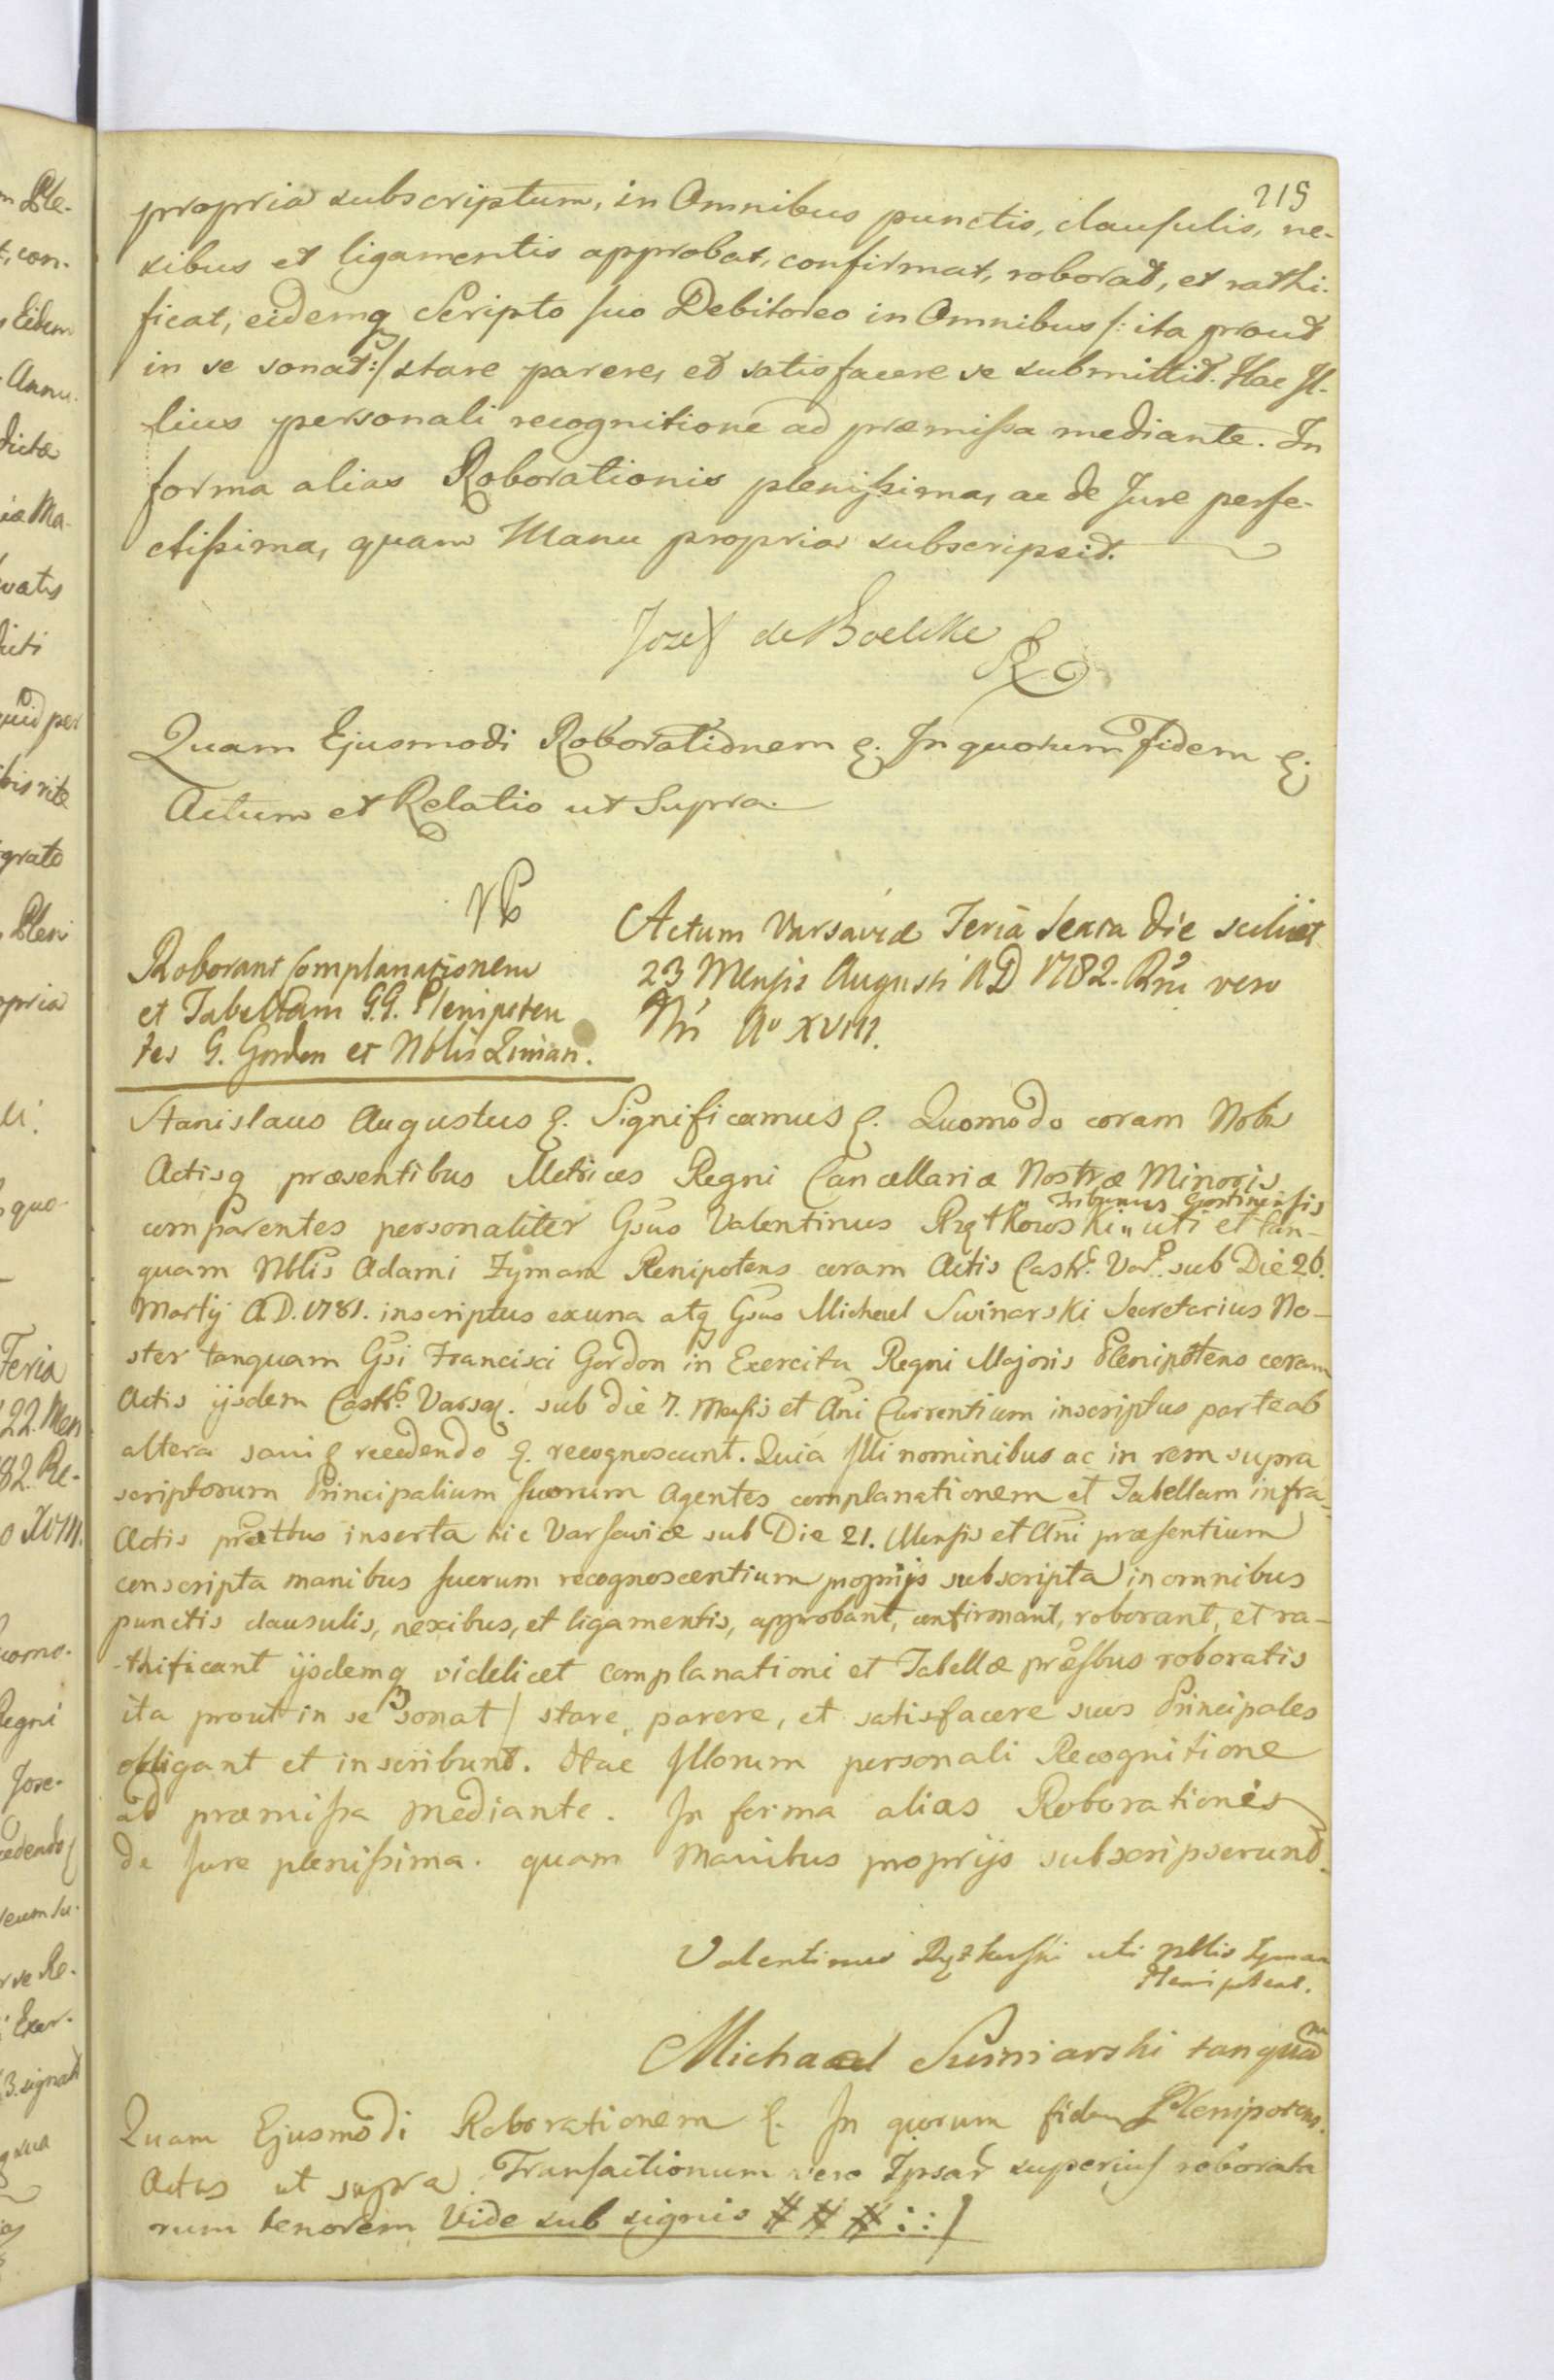 215
propria subscriptum, in Omnibus punctis, clausulis, ne-
xibus et ligamentis approbat, confirmat, roborat, et rathi-
ficat, eidemq Scripto suo Debitoreo in Omnibus /: ita prout
in se sonat :/ stare parere, et satisfacere se submittit. Hac Il-
lius personali recognitione ad præmissa mediante. In
forma alias Roborationis plenissima, ac de Jure perfe-
ctissima, quam Manu propria subscripsit.
Jozef de Boelcke
Quam Ejusmodi Roborationem &. In quorum Fidem &.
Actum et Relatio ut Supra.
Roborant Complanationem
et Tabellam G.G. Plenipoten
tes G. Gordon et Nblis Ziman.
Actum Varsaviæ Feria Sexta Die scilicet
23 Mensis Augusti AD 1782. Rni vero
Nri Ao XVIII.
Stanislaus Augustus &. Significamus &. Quomodo coram Nobis
Actisq præsentibus Metrices Regni Cancellariæ Nostræ Minoris
Tribunus Gostinensis
comparentes personaliter Gsus Valentinus Rzętkowski „ uti et tan-
quam Nblis Adami Zyman Plenipotens coram Actis Castr. Var. sub Die 26.
Martij A.D. 1781. inscriptus ex una atq Gsus Michael Swinarski Secretarius No-
ster tanquam Gsi Francisci Gordon in Exercitu Regni Majoris Plenipotens coram
Actis ijsdem Castr. Varsav. sub die 7. Mensis et Ani Currentium inscriptus parte ab
altera sani & recedendo &. recognoscunt. Quia Illi nominibus ac in rem supra
scriptorum Principalium suorum Agentes complanationem et Tabellam infra
Actis præstbus inserta hic Varsaviæ sub Die 21. Mensis et Ani præsentium
conscripta manibus suorum recognoscentium proprijs subscripta in omnibus
punctis clausulis, nexibus, et ligamentis, approbant, confirmant, roborant, et ra-
-thificant ijsdemq videlicet complanationi et Tabellæ præsbus roboratis
ita prout in se sonat / stare, parere, et satisfacere suos Principales
obligant et inscribunt. Hac Illorum personali Recognitione
ad præmissa mediante. In forma alias Roborationis
de Jure plenissima. quam Manibus proprijs subscripserunt.
Valentinus Rzętkowski uti Nblis Zyman
Plenipotens.
Michael Swinarski tanquam
Plenipotens.
Quam Ejusmodi Roborationem &. In quorum fidem
Actus ut supra. Transactionum vero Ipsar superius roborata
rum tenorem Vide sub signis # # # : : /